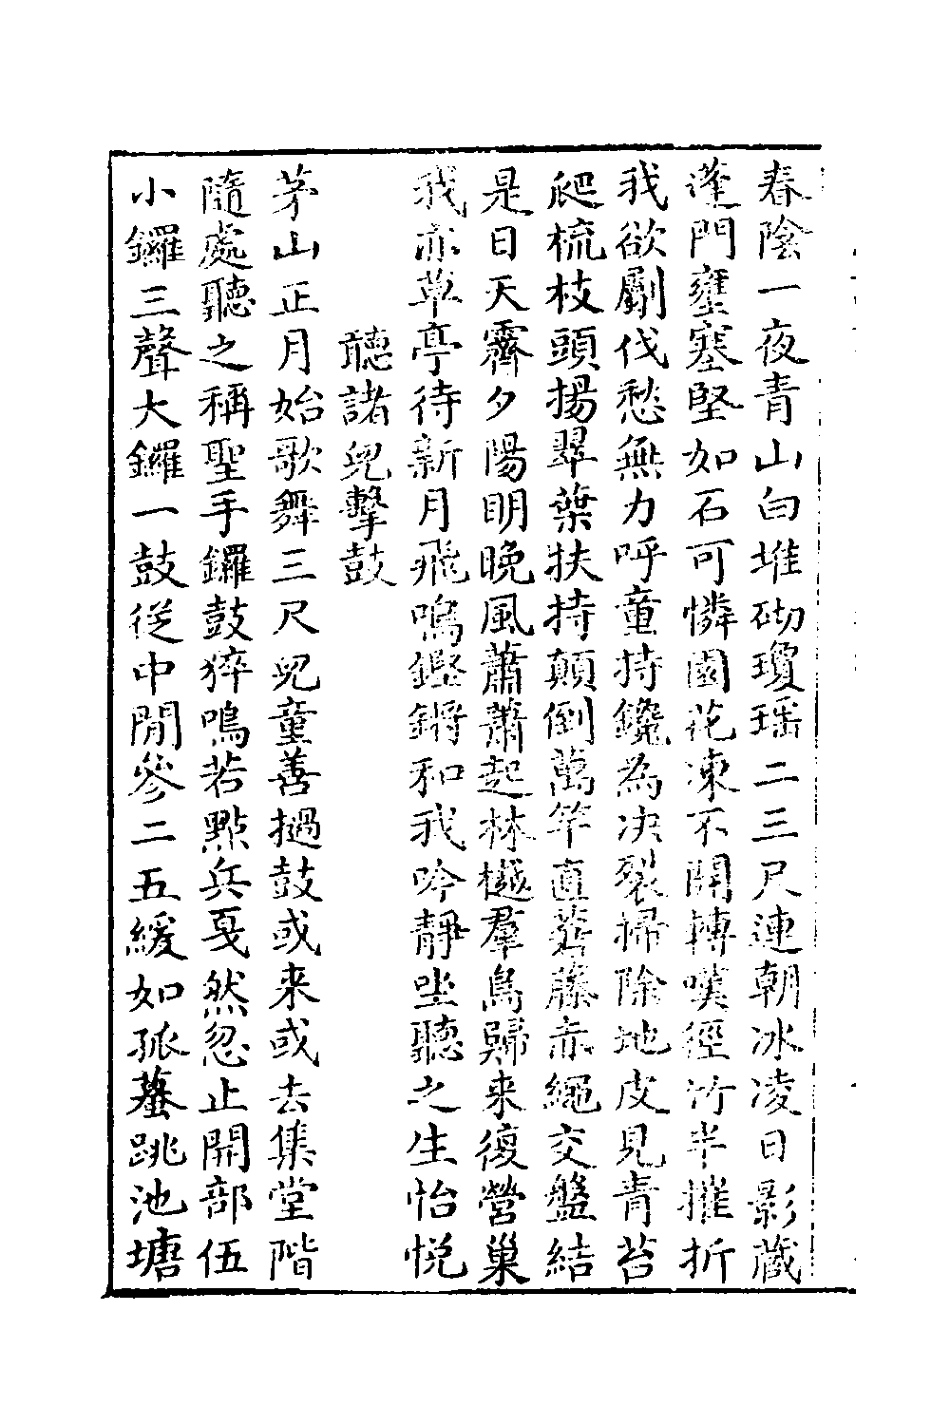 春陰一夜青山白堆砌瓊瑶二三尺連朝冰凌日影蔵
蓬門壅塞堅如石可憐園花凍不開轉嘆徑竹半摧折
我欲劚伐愁無力呼童持鑱為决裂掃除地皮見青苔
爬梳枝頭揚翠葉扶持顛倒萬竿直蒼藤赤繩交盤結
是日天霽夕陽明晚風蕭蕭起林樾羣鳥歸来復營巢
我亦草亭待新月飛鳴鏗鏘和我吟靜坐聽之生怡悦
聽諸兒擊鼓
茅山正月始歌舞三尺兒童善撾鼓或来或去集堂階
隨處聽之稱聖手鑼鼓猝鳴若點兵戛然忽止開部伍
小鑼三聲大鑼一鼓從中間參二五緩如孤蛬跳池塘